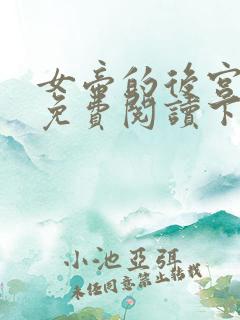 女帝的後宮
免費閱讀下
小池亞弭
未經同意禁止轉載